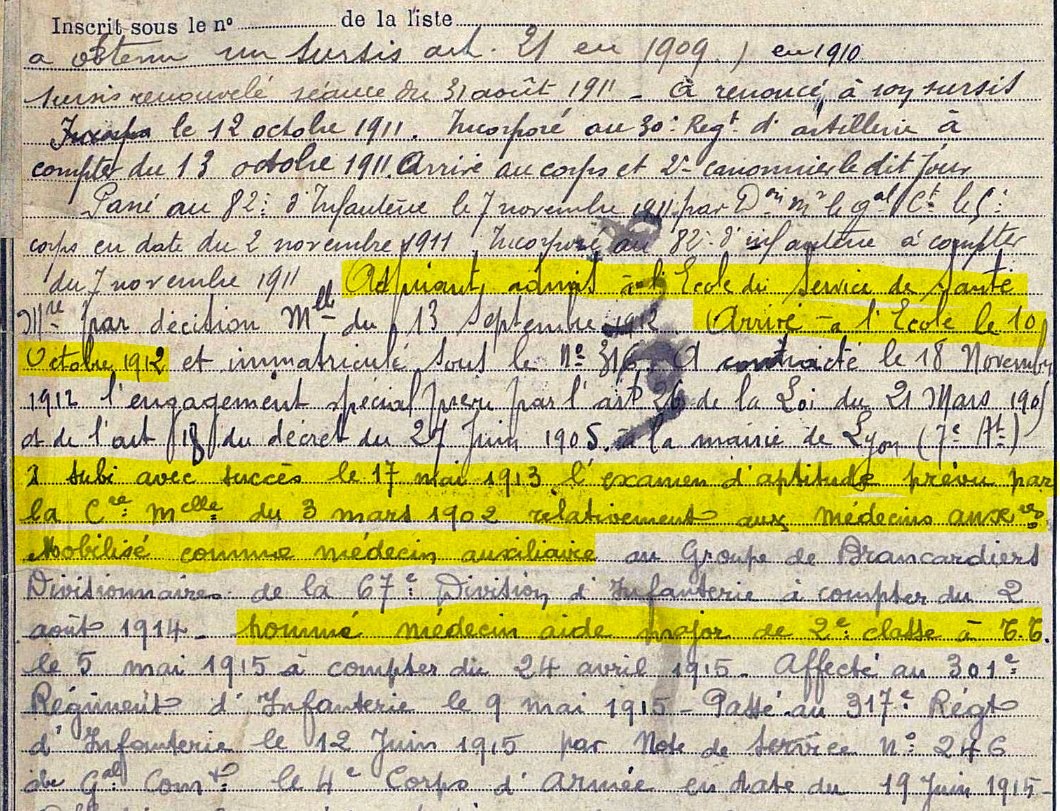 Inscrit sous le n° de la liste
a obtenu un sursis art. 21 en 1909. ) en 1910
sursis renouvelé séance du 31 août 1911 - A renoncé, à son sursis
le 12 octobre 1911. Incorporé au 30e Regt d'artillerie à
compter du 13 octobre 1911 Arrivé au corps et 2e canonnier le dit jour
Passé au 82e d'Infanterie le 7 novembre 1911 par Don mre le gal Ct le 5e
corps en date du 2 novembre 1911 Incorporé au 82e d'infanterie à compter
du 7 novembre 1911 Aspirant, admis à l'Ecole du Service de Santé
Mre par décision Mlle du 13 Septembre 1912 Arrivé à l'Ecole le 10
Octobre 1912 et immatriculé sous le n° 316. A contracté le 18 Novembre
1912 l'engagement spécial prévu par l'art 26 de la Loi du 21 Mars 1905
et de l'art 18 du décret du 27 Juin 1905 à la mairie de Lyon (7e At)
a subi avec succès le 17 mai 1913 l'examen d'aptitude prévu par
la Cre Melle du 3 mars 1902 relativement aux Médecins auxres
Mobilisé comme médecin auxiliaire au Groupe de Brancardiers
Divisionnaires de la 67e Division d'Infanterie à compter du 2
août 1914 - nommé médecin aide major de 2e classe à T.T.
le 5 mai 1915 à compter du 24 avril 1915. Affecté au 301e
Régiment d'Infanterie le 9 mai 1915 - Passé au 317e Régt
d'Infanterie le 12 Juin 1915 par Note de Service N° 246
du Gal Comt le 4e Corps d'Armée en date du 19 Juin 1915-